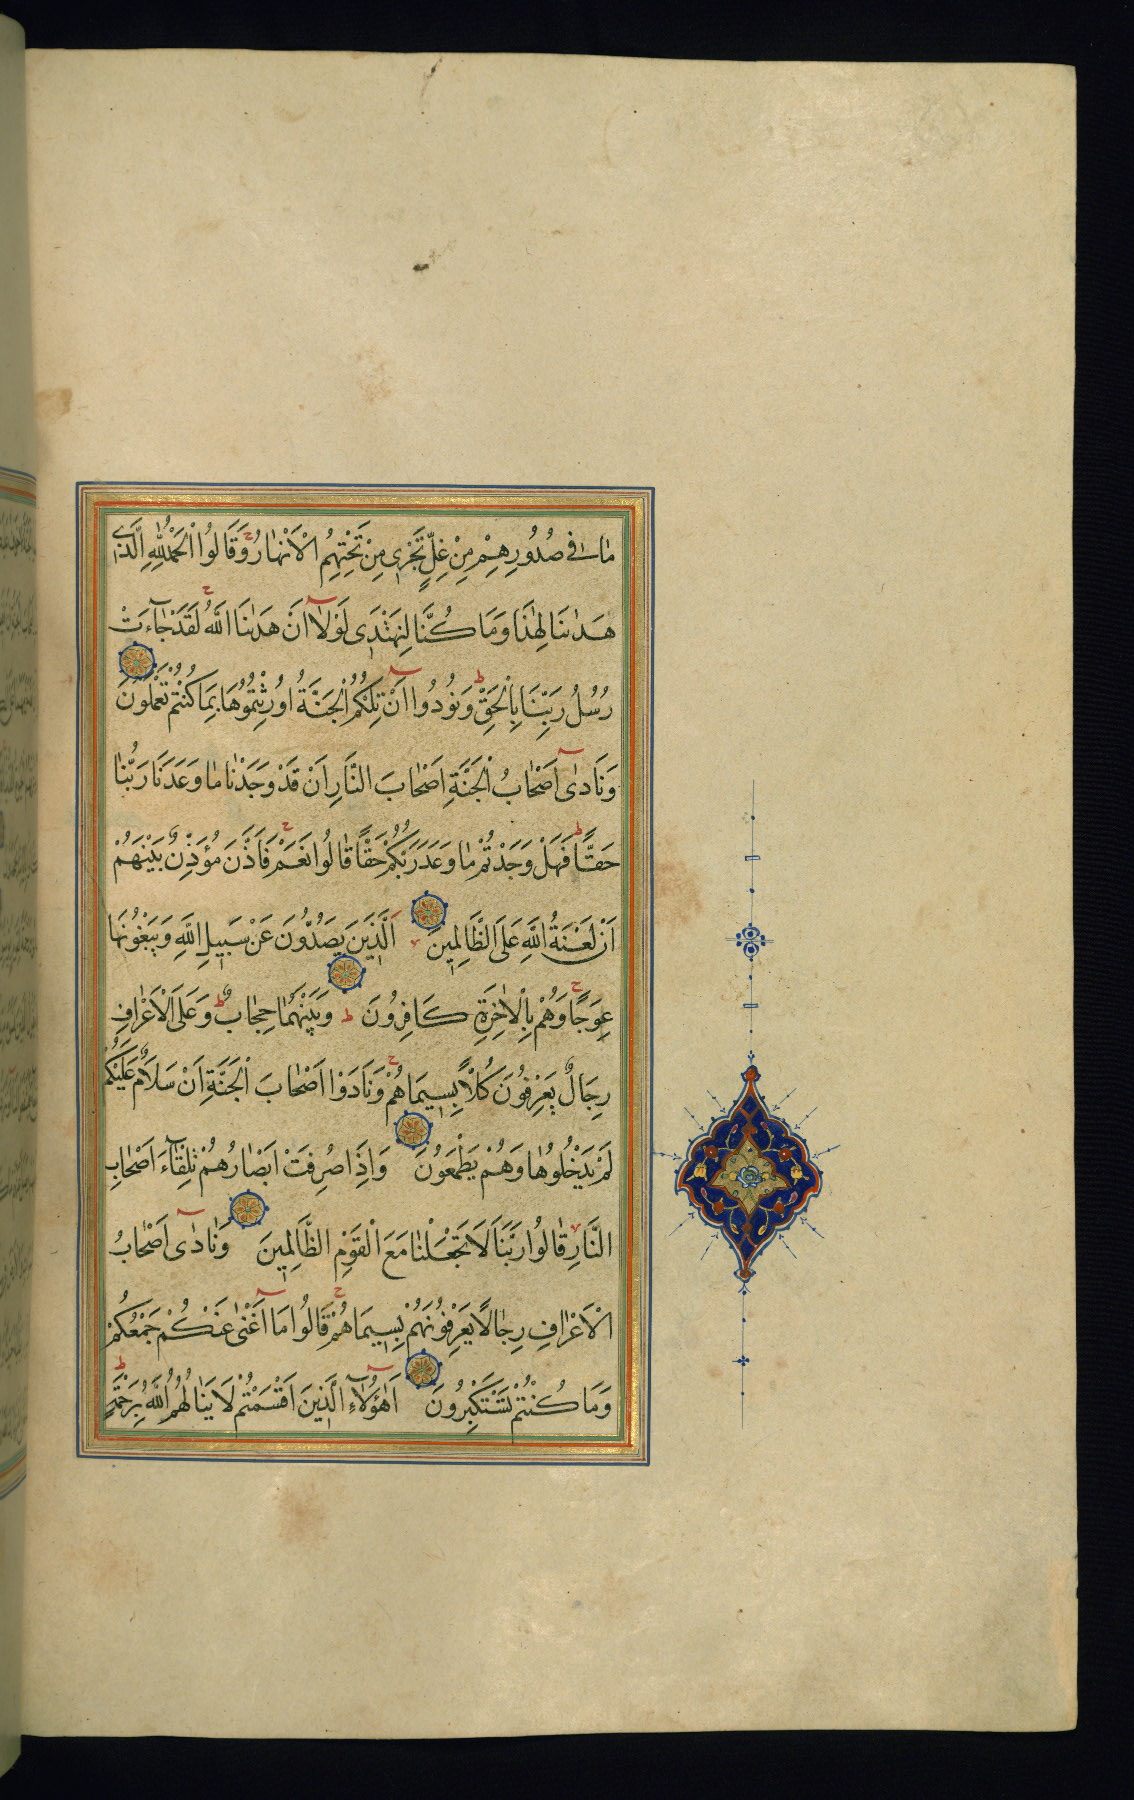 مَا فِي صُدُورِهِمْ مِنْ غِلٍّ تَجْرِي مِنْ تَحْتِهِمُ الْأَنْهَارُ وَقَالُوا الْحَمْدُ لِلّٰهِ الَّذِي
هَدٰينَا لِهٰذَا وَمَا كُنَّا لِنَهْتَدِيَ لَوْلَا أَنْ هَدٰينَا اللّٰهُ لَقَدْ جَاءَتْ
رُسُلُ رَبِّنَا بِالْحَقِّ وَنُودُوا أَنْ تِلْكُمُ الْجَنَّةُ اُورِثْتُمُوهَا بِمَا كُنْتُمْ تَعْمَلُونَ
وَنَادٰى أَصْحَابُ الْجَنَّةِ اَصْحَابَ النَّارِ اَنْ قَدْ وَجَدْنَا مَا وَعَدَنَا رَبُّنَا
حَقًّا فَهَلْ وَجَدْتُمْ مَا وَعَدَ رَبُّكُمْ حَقًّا قَالُوا نَعَمْ فَاَذَّنَ مُؤَذِّنٌ بَيْنَهُمْ
اَنْ لَعْنَةُ اللّٰهِ عَلَى الظَّالِمِينَ اَلَّذِينَ يَصُدُّونَ عَنْ سَبِيلِ اللّٰهِ وَيَبْغُونَهَا
عِوَجًا وَهُمْ بِالْاٰخِرَةِ كَافِرُونَ وَبَيْنَهُمَا حِجَابٌ وَعَلَى الْاَعْرَافِ
رِجَالٌ يَعْرِفُونَ كُلًّا بِسِيمَاهُمْ وَنَادَوْا اَصْحَابَ الْجَنَّةِ اَنْ سَلَامٌ عَلَيْكُمْ
لَمْ يَدْخُلُوهَا وَهُمْ يَطْمَعُونَ وَاِذَا صُرِفَتْ اَبْصَارُهُمْ تِلْقَاءَ اَصْحَابِ
النَّارِ قَالُوا رَبَّنَا لَا تَجْعَلْنَا مَعَ الْقَوْمِ الظَّالِمِينَ وَنَادٰى اَصْحَابُ
الْاَعْرَافِ رِجَالًا يَعْرِفُونَهُمْ بِسِيمَاهُمْ قَالُوا مَا اَغْنٰى عَنْكُمْ جَمْعُكُمْ
وَمَا كُنْتُمْ تَسْتَكْبِرُونَ اَهٰؤُلَاءِ الَّذِينَ اَقْسَمْتُمْ لَا يَنَالُهُمُ اللّٰهُ بِرَحْمَةٍ